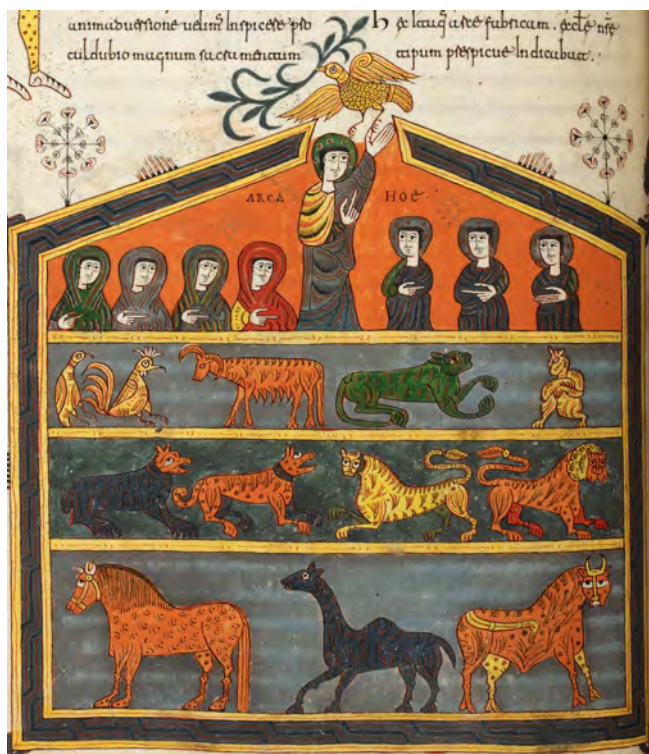 animaduersione uelim᷒ Inspicere pro
culdubio magnum sacramentum
hec Itaq arce fabricam. ecclē nr̄e
tipum perspicue Indicabat.
ARCA NOE